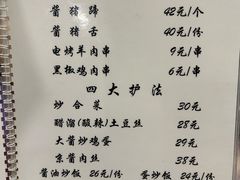 酱猪蹄 42元/个
酱猪舌 40元/份
电烤羊肉串 9元/串
黑椒鸡肉串 6元/串
四大护法
炒合菜 30元
醋溜(酸辣)土豆丝 28元
大酱炒鸡蛋 29元
京酱肉丝 38元
酱油炒饭 26元/份 蛋炒饭 24元/份